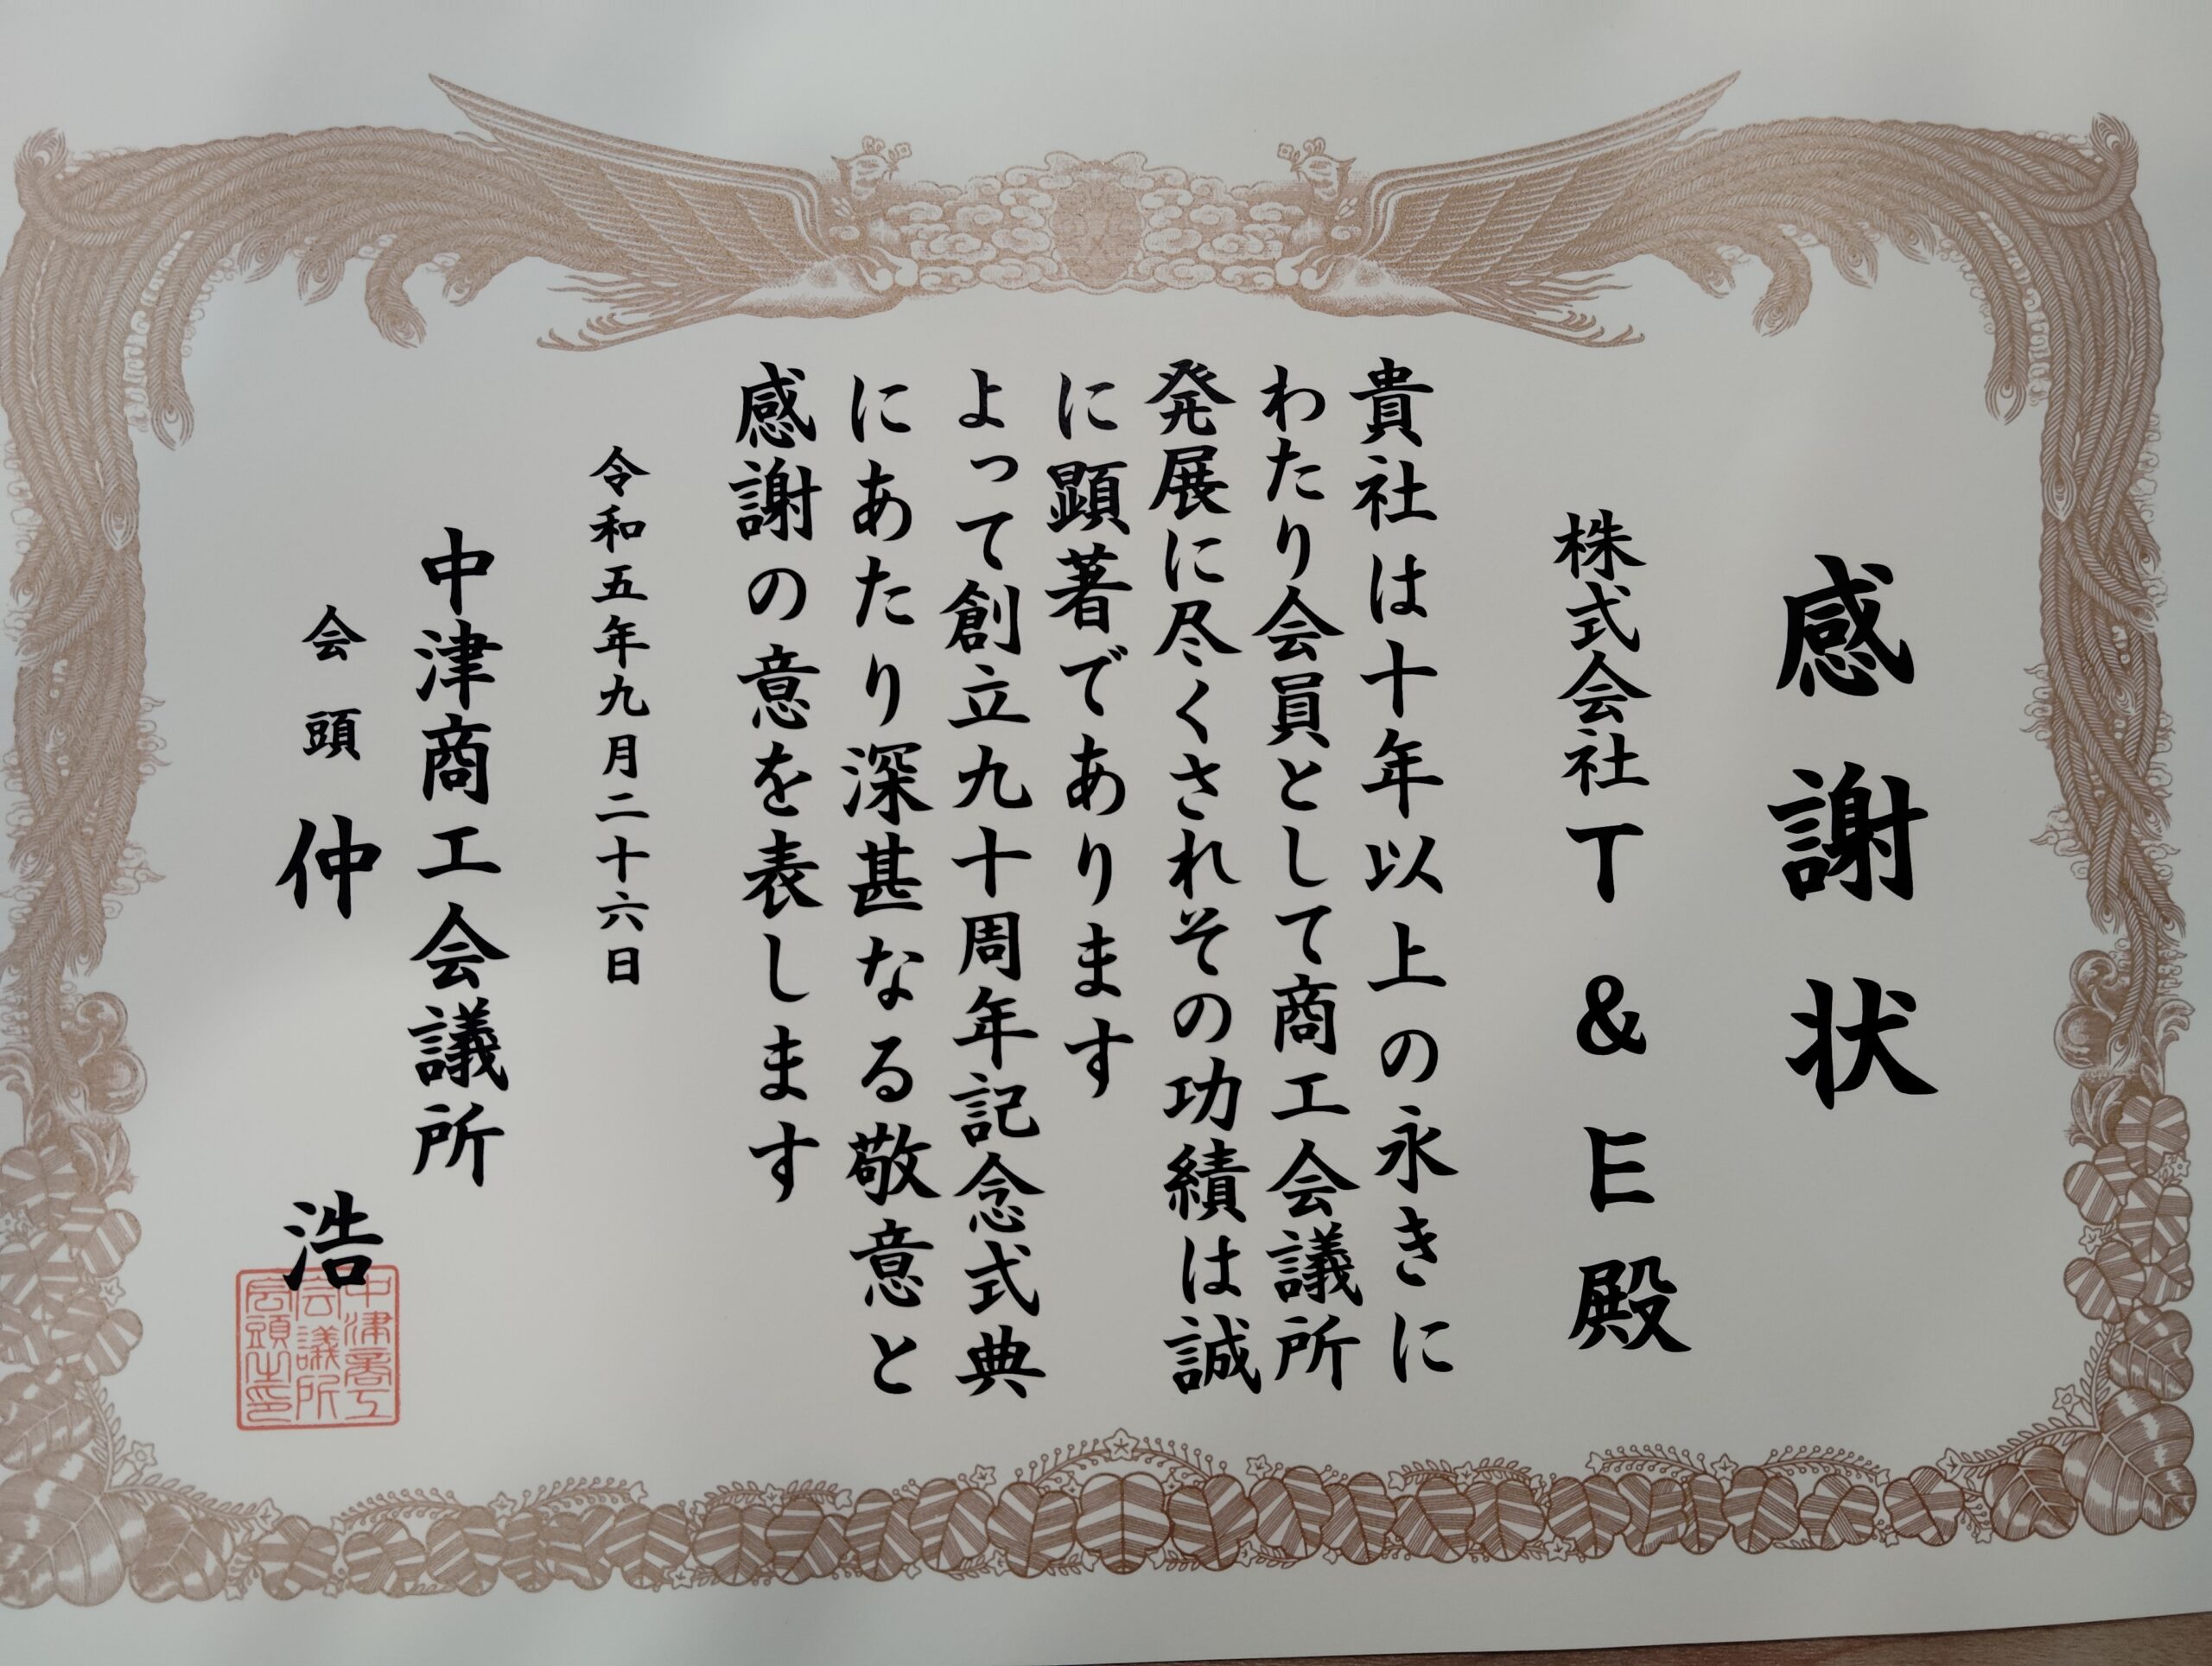 感謝状
株式会社T&E殿
貴社は十年以上の永きに
わたり会員として商工会議所
発展に尽くされその功績は誠
に顕著であります
よって創立九十周年記念式典
にあたり深甚なる敬意と
感謝の意を表します
令和五年九月二十六日
中津商工会議所
会頭 仲 浩
中津商工
会議所
会頭之印